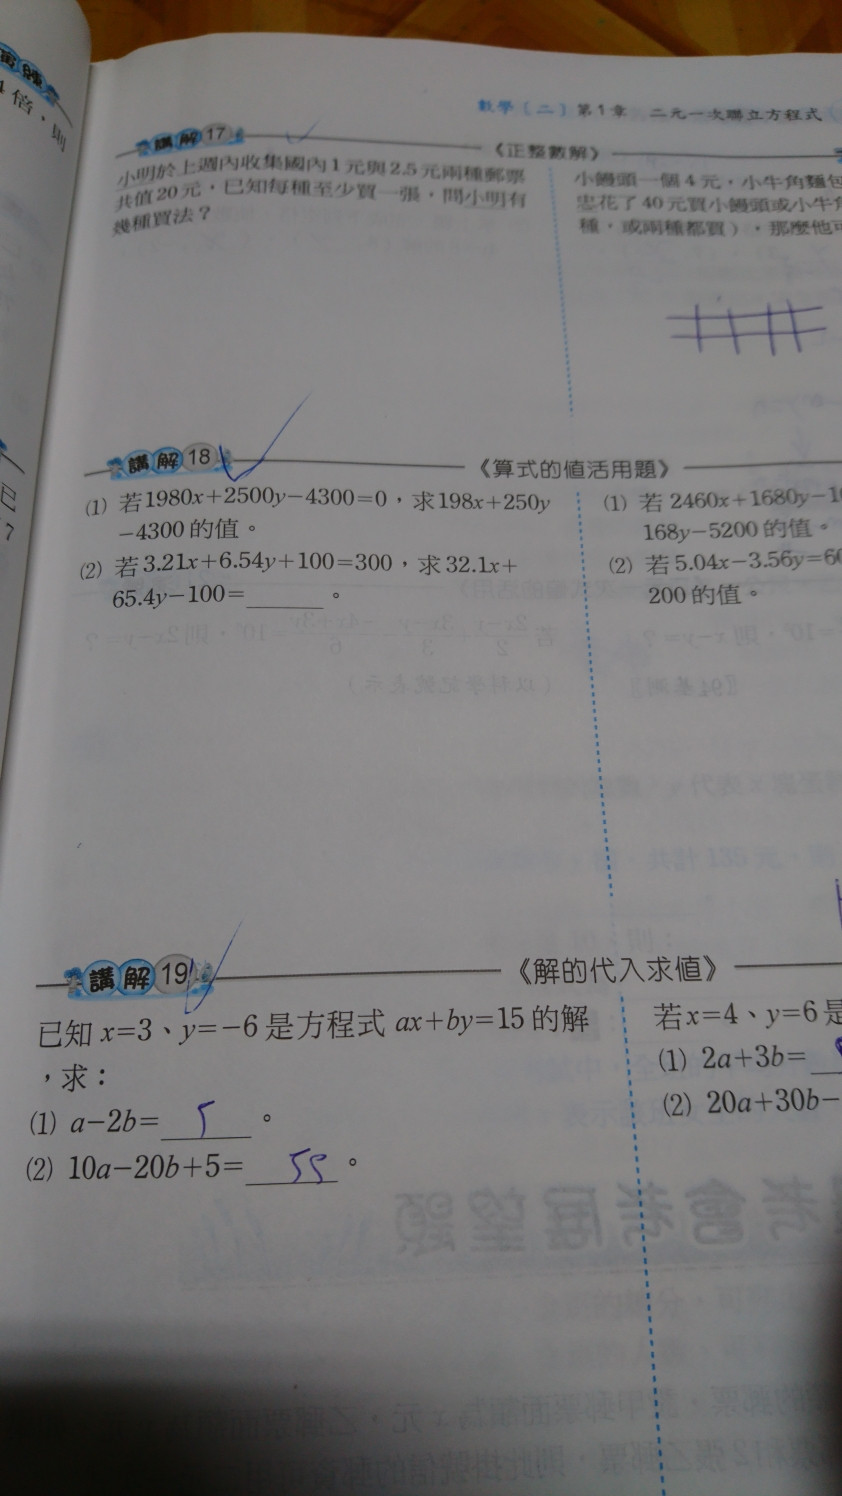 倍，則
數學〔二〕第1章 二元一次聯立方程式
講解17
《正整數解》
小明於上週內收集國內1元與2.5元兩種郵票
共值20元，已知每種至少買一張，問小明有
幾種買法？
小饅頭一個4元，小牛角麵包
忠花了40元買小饅頭或小牛角
種，或兩種都買），那麼他可
講解18
《算式的值活用題》
(1) 若1980x+2500y−4300=0，求198x+250y
−4300的值。
(2) 若3.21x+6.54y+100=300，求32.1x+
65.4y−100=______。
(1) 若2460x+1680y−10
168y−5200的值。
(2) 若5.04x−3.56y=60
200的值。
已
7
講解19
《解的代入求值》
已知x=3、y=−6是方程式ax+by=15的解
，求：
(1) a−2b=5。
(2) 10a−20b+5=55。
若x=4、y=6是
(1) 2a+3b=
(2) 20a+30b−